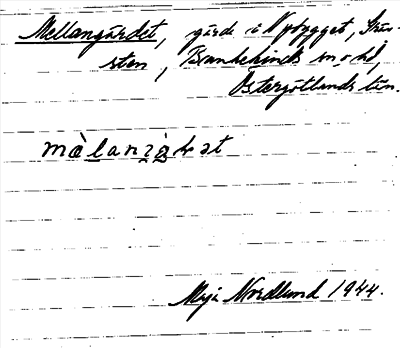 Mellangärdet, gärde i Nybygget,
Brunnehinds sn o hd,
Östergötlands län.
mèlanjàḥət
Maja Nordlund 1944.